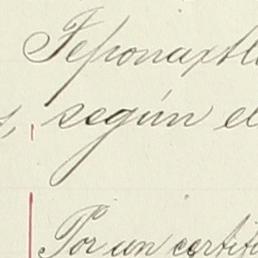 Teponaxtl
s, según el
Por un certifi